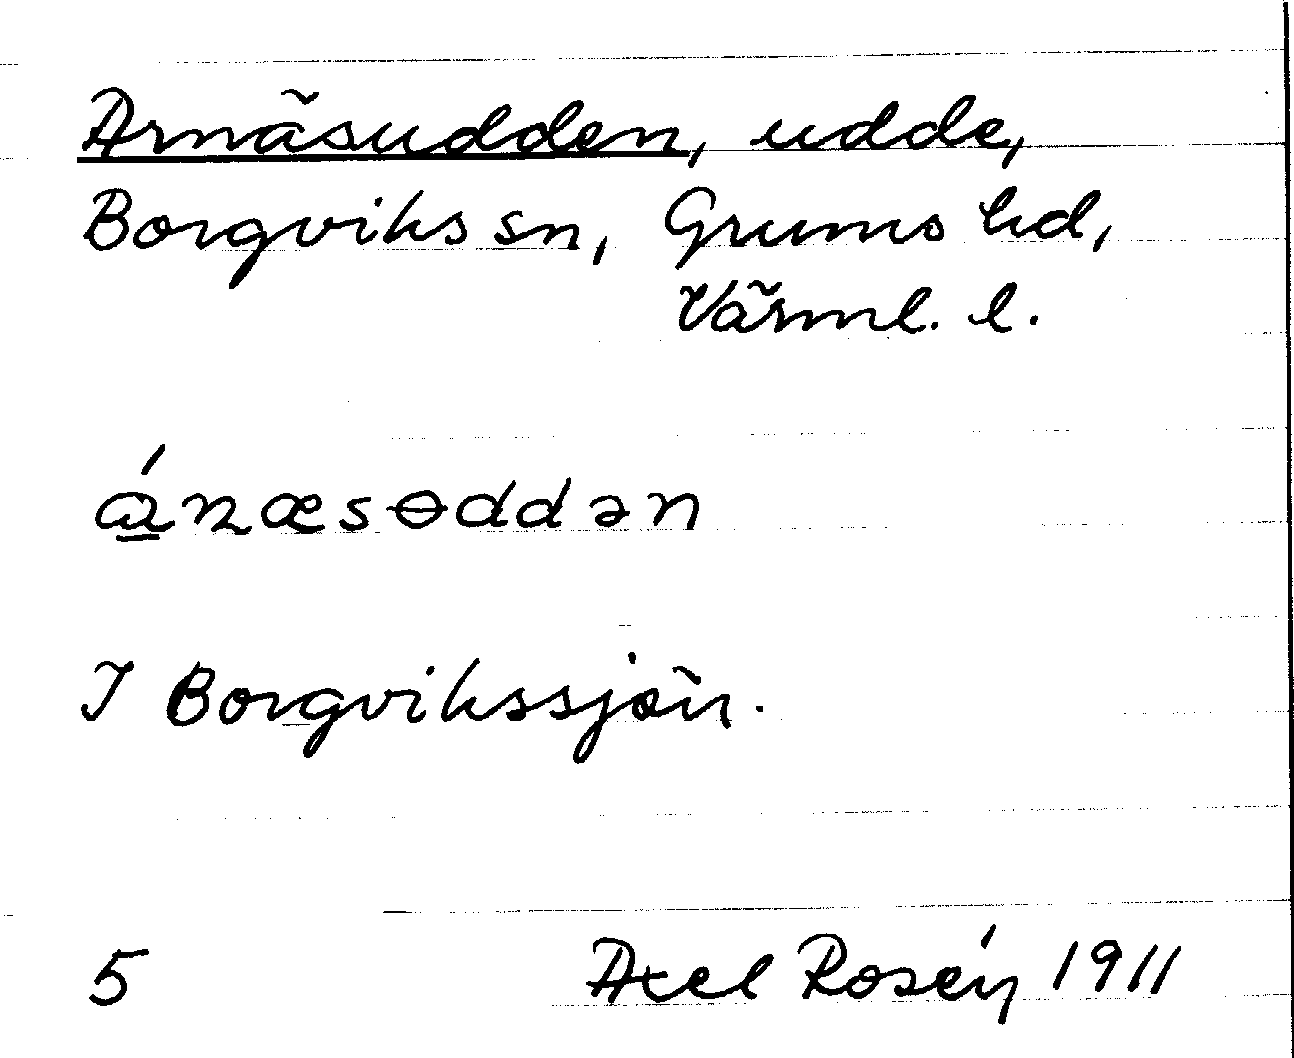 Arnäsudden, udde,
Borgviks sn, Grums hd,
Värml. l.
á̱ɳæsɵddən
I Borgvikssjön.
5 Axel Rosén 1911